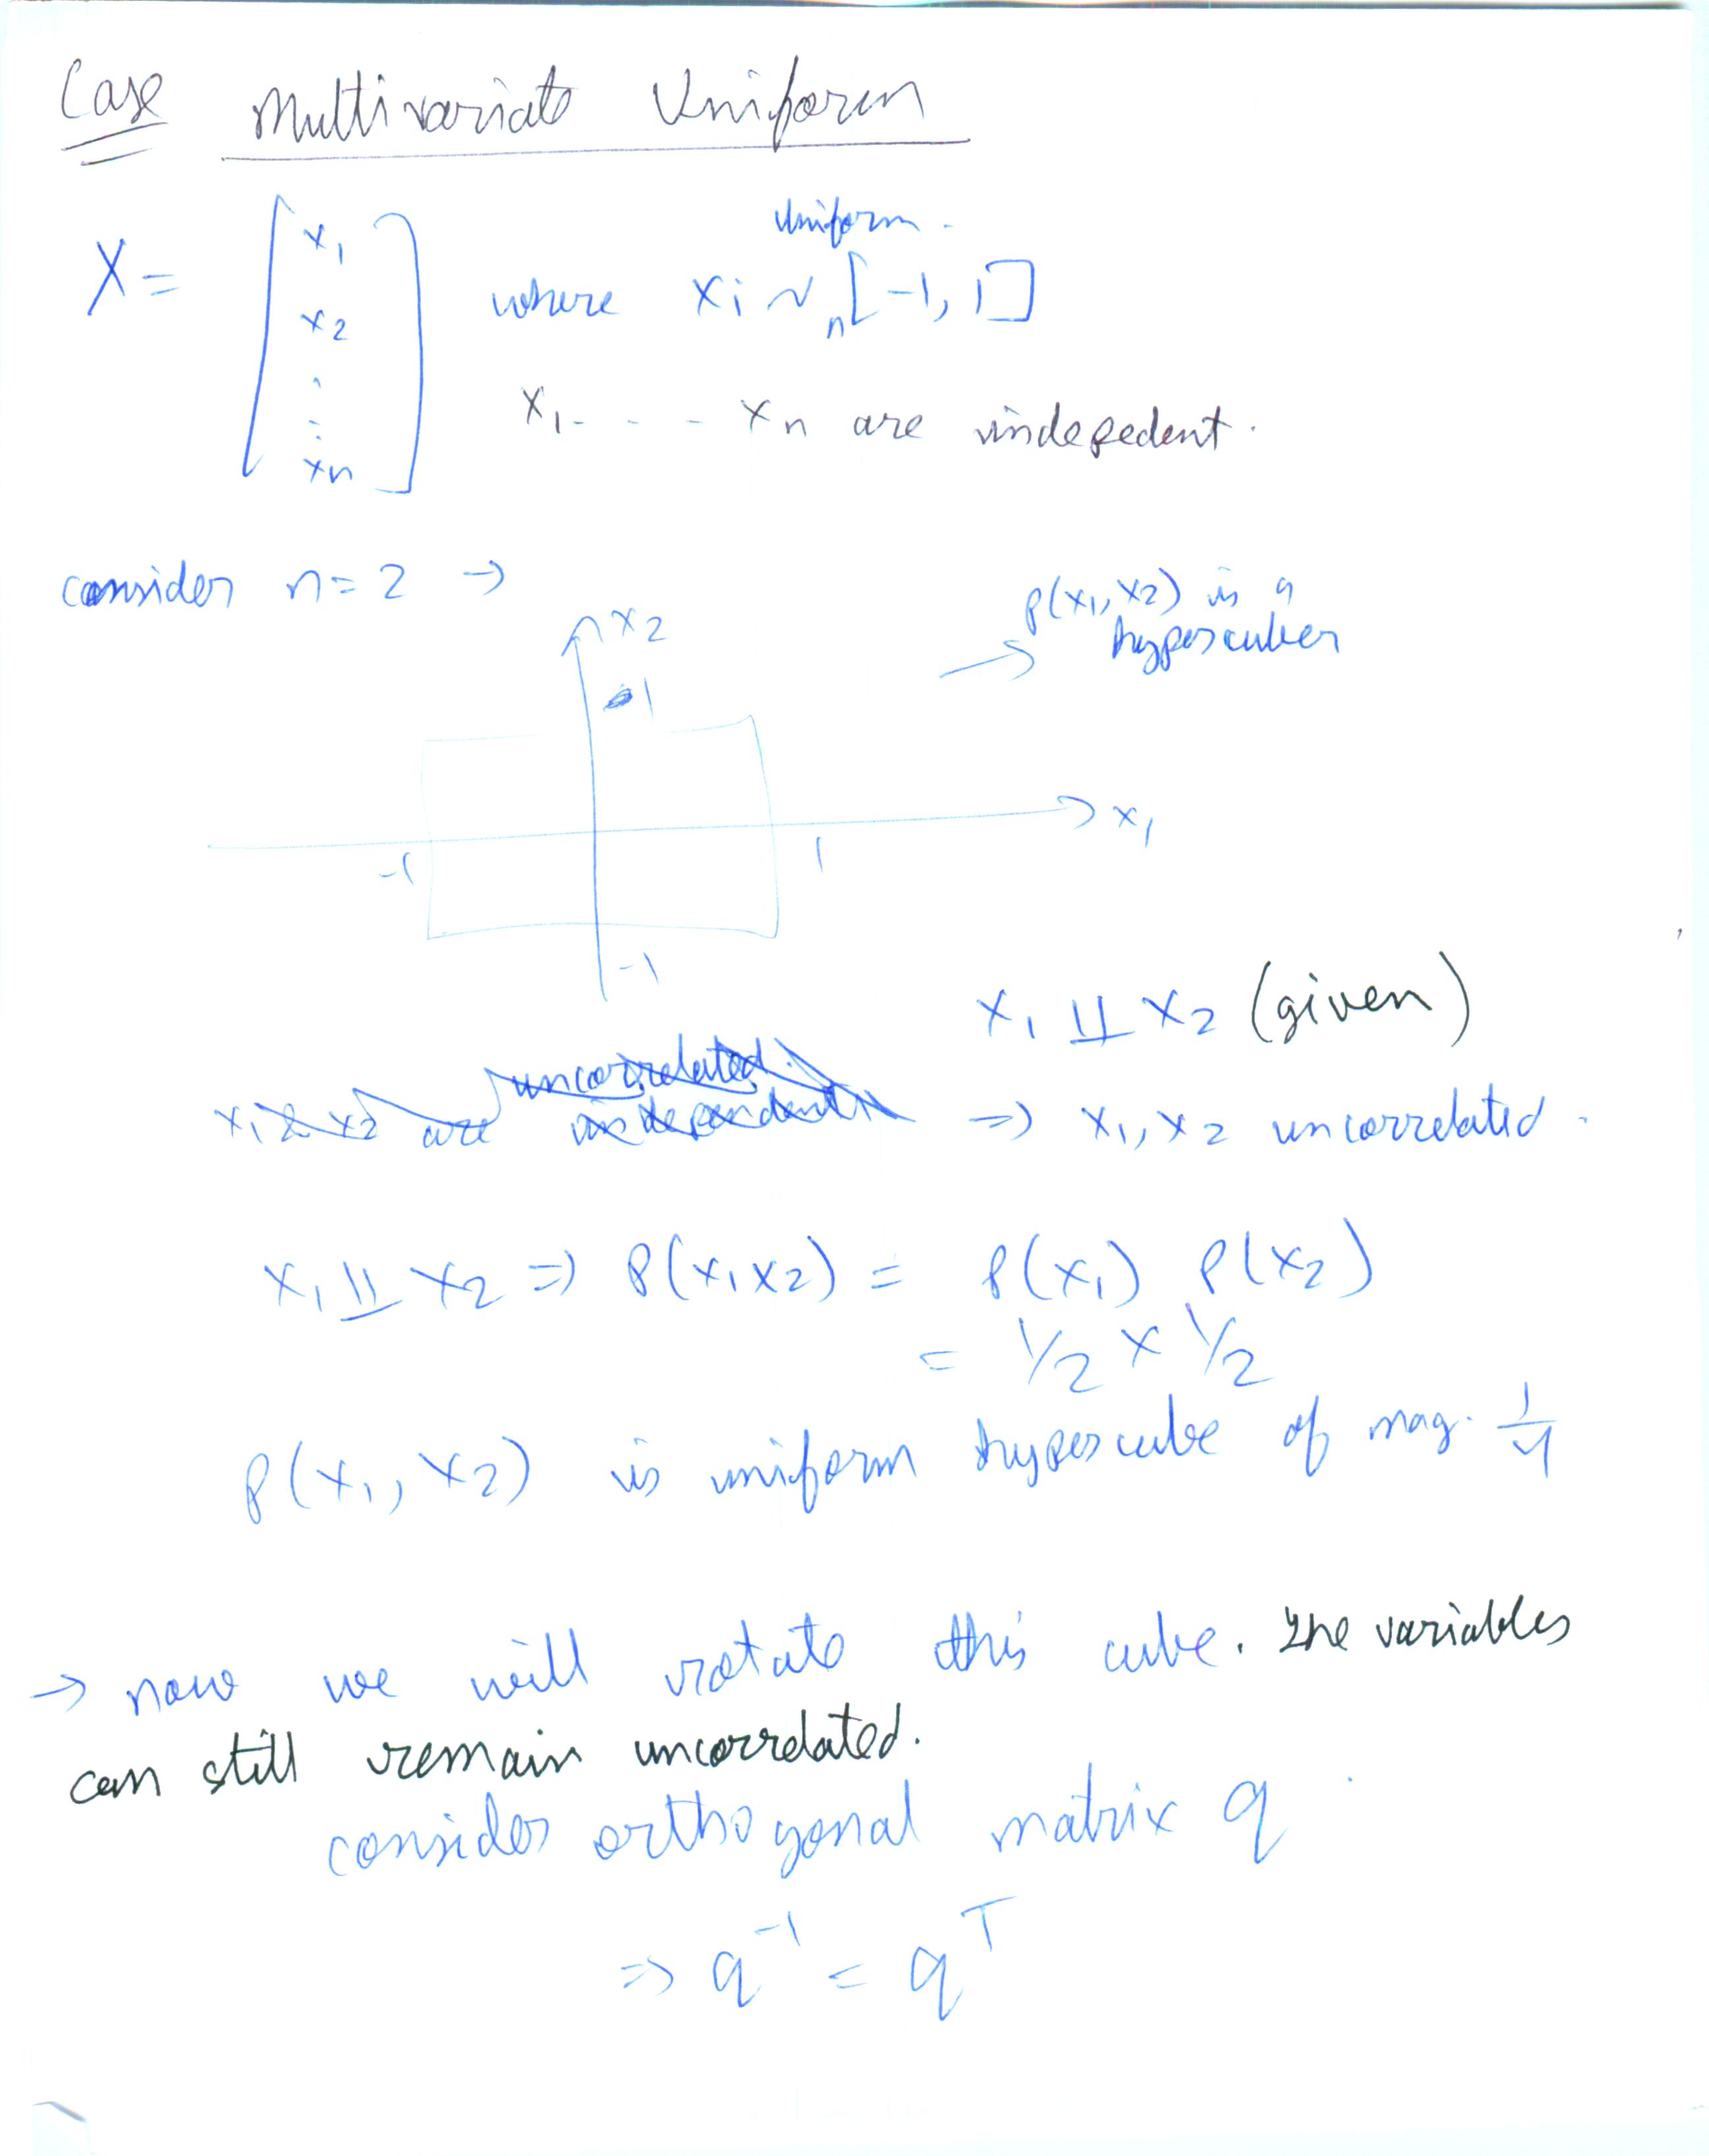 Case Multivariate Uniform
X = [ x1 x2 . : xn ] where xi ~ n[-1, 1] uniform.
x1 - - - xn are indepedent.
consider n = 2 →
p(x1, x2) is a
→ hypercube
x2
1
→ x1
-1 1
-1
x1 ⫫ x2 (given)
uncorrelated.
x1 & x2 are independent ⇒ x1, x2 uncorrelated.
x1 ⫫ x2 ⇒ P(x1 x2) = P(x1) P(x2)
= 1/2 × 1/2
P(x1, x2) is uniform hypercube of mag. 1/4
→ now we will rotate this cube. The variables
can still remain uncorrelated.
consider orthogonal matrix q
⇒ q^-1 = q^T